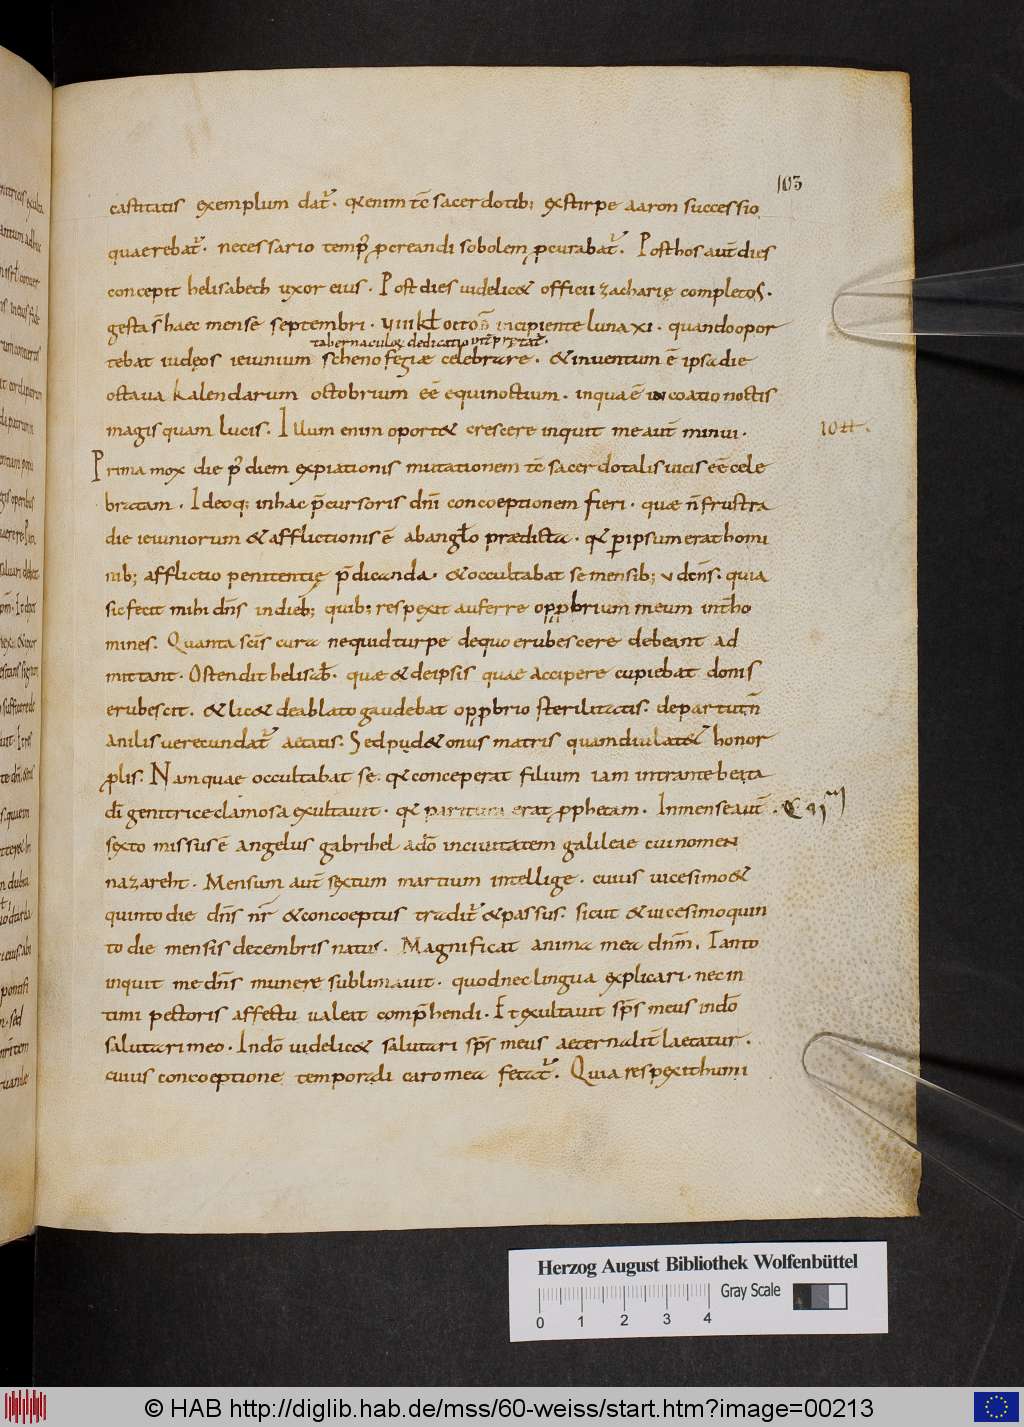 103
castitatis exemplum dat͛. q&enim tē sacerdotib; exstirpe aaron successio
quaerebat͛. necessario temp̄ ꝓcreandi sobolem ꝓcurabat͛. Posthos aut̄ dies
concepit helisabech uxor eius. Post dies uidelic& officii zacharię completos.
gesta s̄ haec mense septembri. uiiikł octob̄ incipiente luna xi. quandoopor
tabernaculoꝝ dedicatio int̄p̄tat͛.
tebat iudęos ieiunium schenofegiæ celebrare. &inuentum ē ipsa die
octaua kalendarum octobrium eē equinoctium. inqua ē incoatio noctis
magis quam lucis. Illum enim oport& crescere inquit me aut̄ minui.
Prima mox die p̄ diem expiationis mutationem tē sacerdotalis uicis eē cele
bratam. Ideoq; inhac p̄cursoris dn̄i concoeptionem fieri. quae n̄ frustra
die ieiuniorum &afflictionis ē abangło prædicta. q& ꝑipsum erat homi
nib; afflictio penitentię p̄dicanda. &occultabat se mensib; v dcn̄s. quia
sic fecit mihi dn̄s indieb; quib; respexit auferre opꝓbrium meum int̄ ho
mines. Quanta scīs cura nequid turpe dequo erubescere debeant ad
mittant. Ostendit helisab̄. quae &deipsis quae accipere cupiebat donis
erubescit. &lic& deablato gaudebat opꝓbrio sterilitatis. departu tn̄
anilis uerecundat͛ aetatis. Sed pud& onus matris quamdiu lat& honor
ꝓlis. Nam quae occultabat se. q& conceperat filium iam intrante beata
dī genitrice clamosa exultauit. q& paritura erat ꝓphetam. Inmense aut̄
sexto missus ē angelus gabrihel adō inciuitatem galileae cui nomen
nazareht. Mensum aut̄ sextum martium intellige. cuius uicesimo&
quinto die dn̄s nr̄ &concoeptus tradit͛ &passus. sicut &uicesimoquin
to die mensis decembris natus. Magnificat anima mea dn̄m. Tanto
inquit me dn̄s munere sublimauit. quod nec lingua explicari. nec in
timi pectoris affectu ualeat comp̄hendi. Et exultauit sp̄s meus indō
salutari meo. Indō uidelic& salutari sp̄s meus aeterna dīt laetatur.
cuius concoeptione temporadi caro mea fetat͛. Quia respexit humi
Herzog August Bibliothek Wolfenbüttel
Gray Scale
0 1 2 3 4
© HAB http://diglib.hab.de/mss/60-weiss/start.htm?image=00213